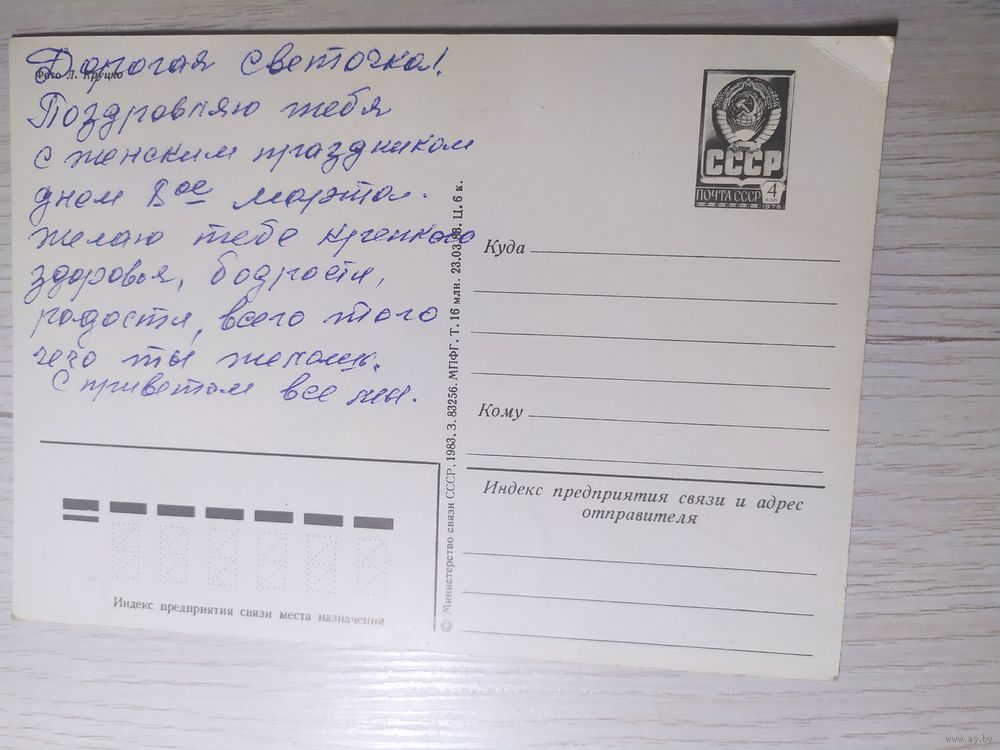 Дорогая Светочка!
Фото Л. Круцко
Поздровляю тебя
с женским праздником
днем 8ое марта.
желаю тебе крепкого
здоровья, бодрости,
радости, всего того
чего ты желаешь.
С приветом все мы.
СССР
ПОЧТА СССР 4 коп
1976
Куда
Кому
Индекс предприятия связи и адрес
отправителя
© Министерство связи СССР. 1983. З. 83256. МПФГ. Т. 16 млн. 23.03.83. Ц. 6 к.
Индекс предприятия связи места назначения
www.ay.by